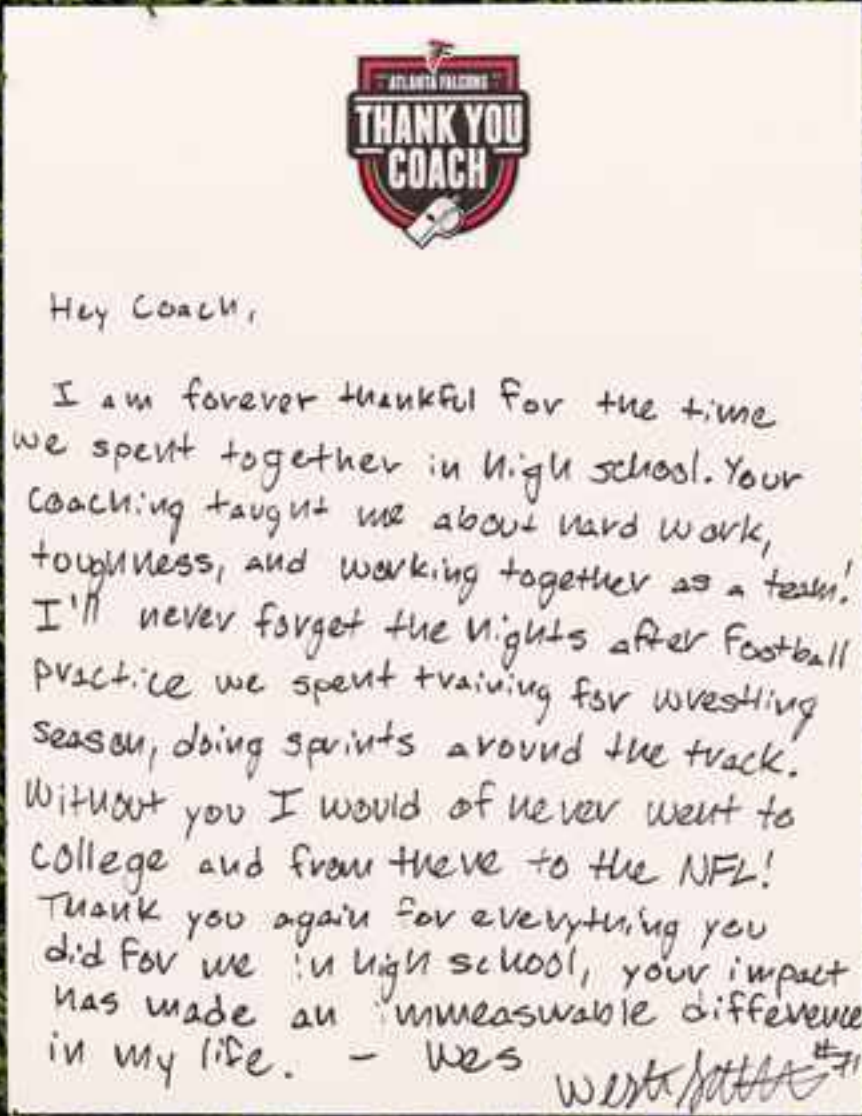 ATLANTA FALCONS
THANK YOU
COACH
Hey Coach,
I am forever thankful for the time
we spent together in high school. Your
coaching taught me about hard work,
toughness, and working together as a team!
I'll never forget the nights after football
practice we spent training for wrestling
season, doing sprints around the track.
Without you I would of never went to
college and from there to the NFL!
Thank you again for everything you
did for me in high school, your impact
has made an immeasurable difference
in my life. - Wes
#71